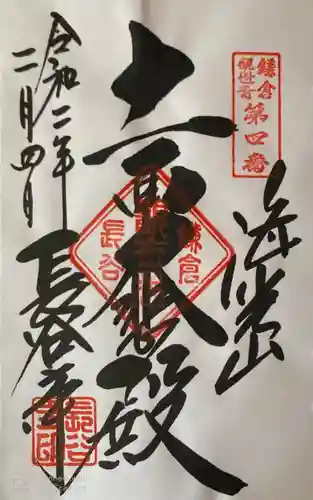 鎌倉
観世音
第四番
海光山
十一面大悲殿
鎌倉
長谷
令和二年
二月四日
長谷寺
長谷
寺印